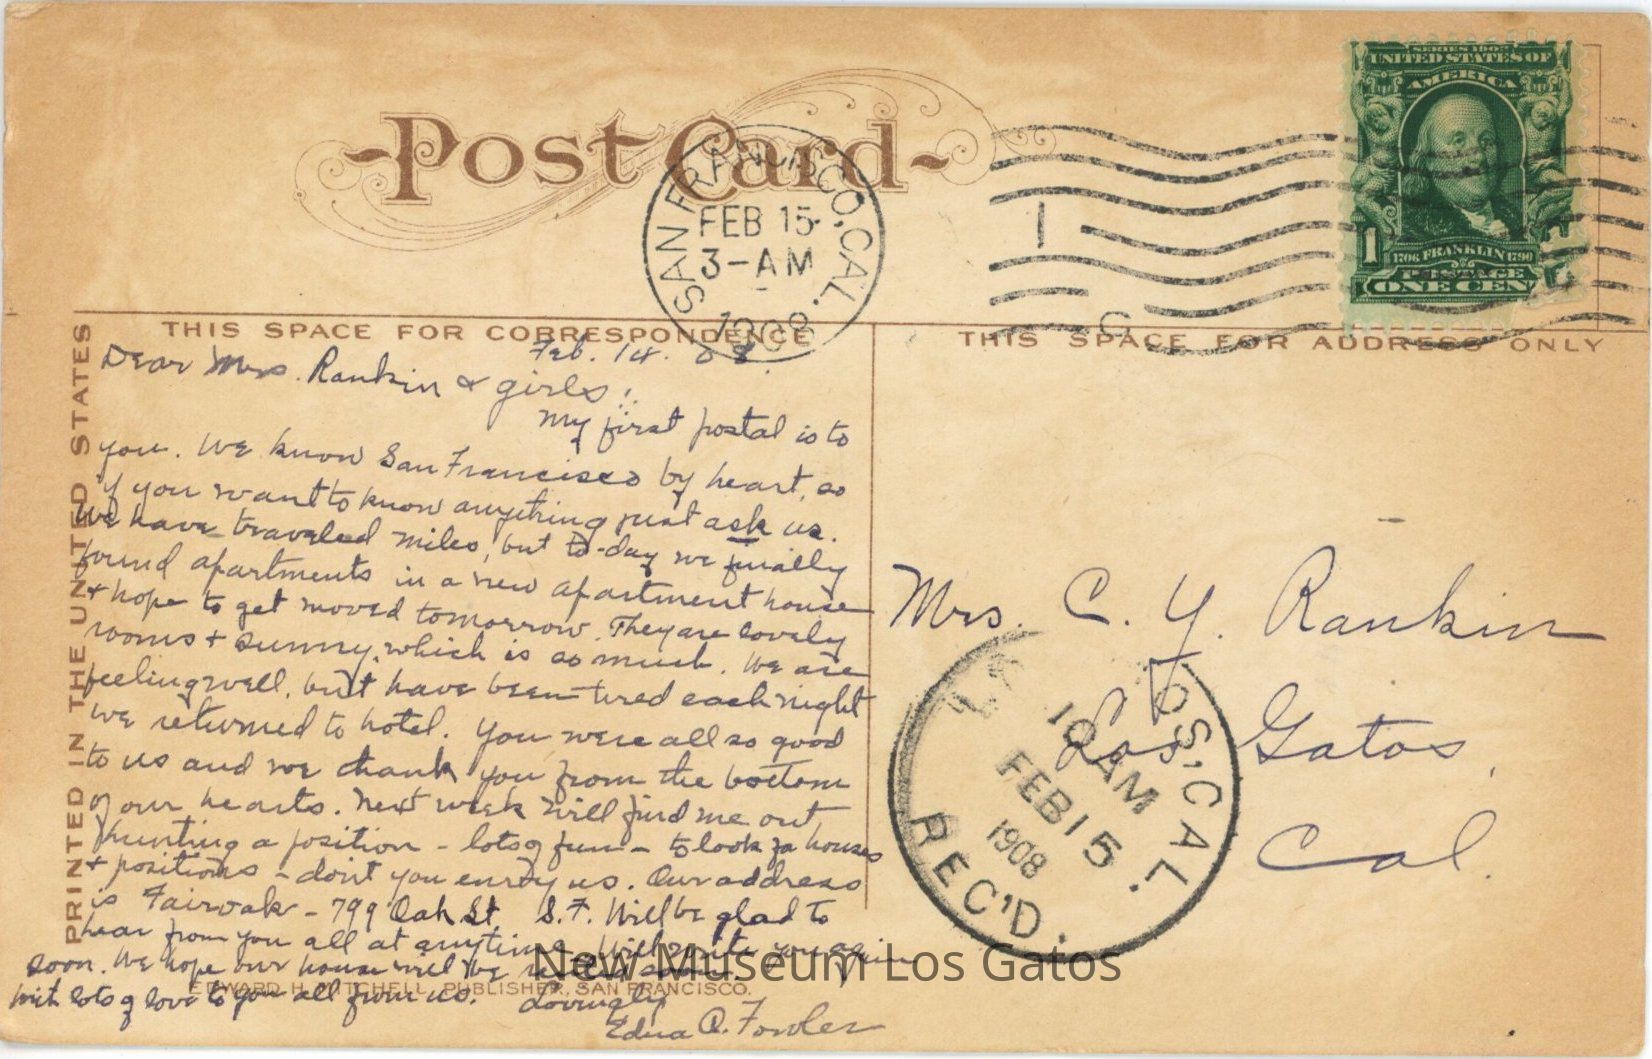 Post Card
SAN FRANCISCO, CAL.
FEB 15
3-AM
1908
SERIES 1902
UNITED STATES OF
AMERICA
1
1706 FRANKLIN 1790
POSTAGE
ONE CEN
THIS SPACE FOR CORRESPONDENCE
THIS SPACE FOR ADDRESS ONLY
PRINTED IN THE UNITED STATES
Feb. 14. 08.
Dear Mrs. Rankin & girls:
My first postal is to
you. We know San Francisco by heart, so
if you want to know anything just ask us.
We have traveled miles, but to-day we finally
found apartments in a new apartment house
& hope to get moved tomorrow. They are lovely
rooms & sunny, which is so much. We are
feeling well, but have been tired each night
we returned to hotel. You were all so good
to us and we thank you from the bottom
of our hearts. Next week will find me out
hunting a position - lots of fun - to look for houses
& positions - don't you envy us. Our address
is Fairoak - 799 Oak St S.F. Will be glad to
hear from you all at anytime. Will write you again
soon. We hope our house will be
with lots of love to you all from us. Lovingly
Edna Q. Fowler
EDWARD H. MITCHELL, PUBLISHER, SAN FRANCISCO.
Mrs. C. Y. Rankin
Los Gatos,
Cal.
OS, CAL.
10 AM
FEB 15
1908
REC'D.
New Museum Los Gatos